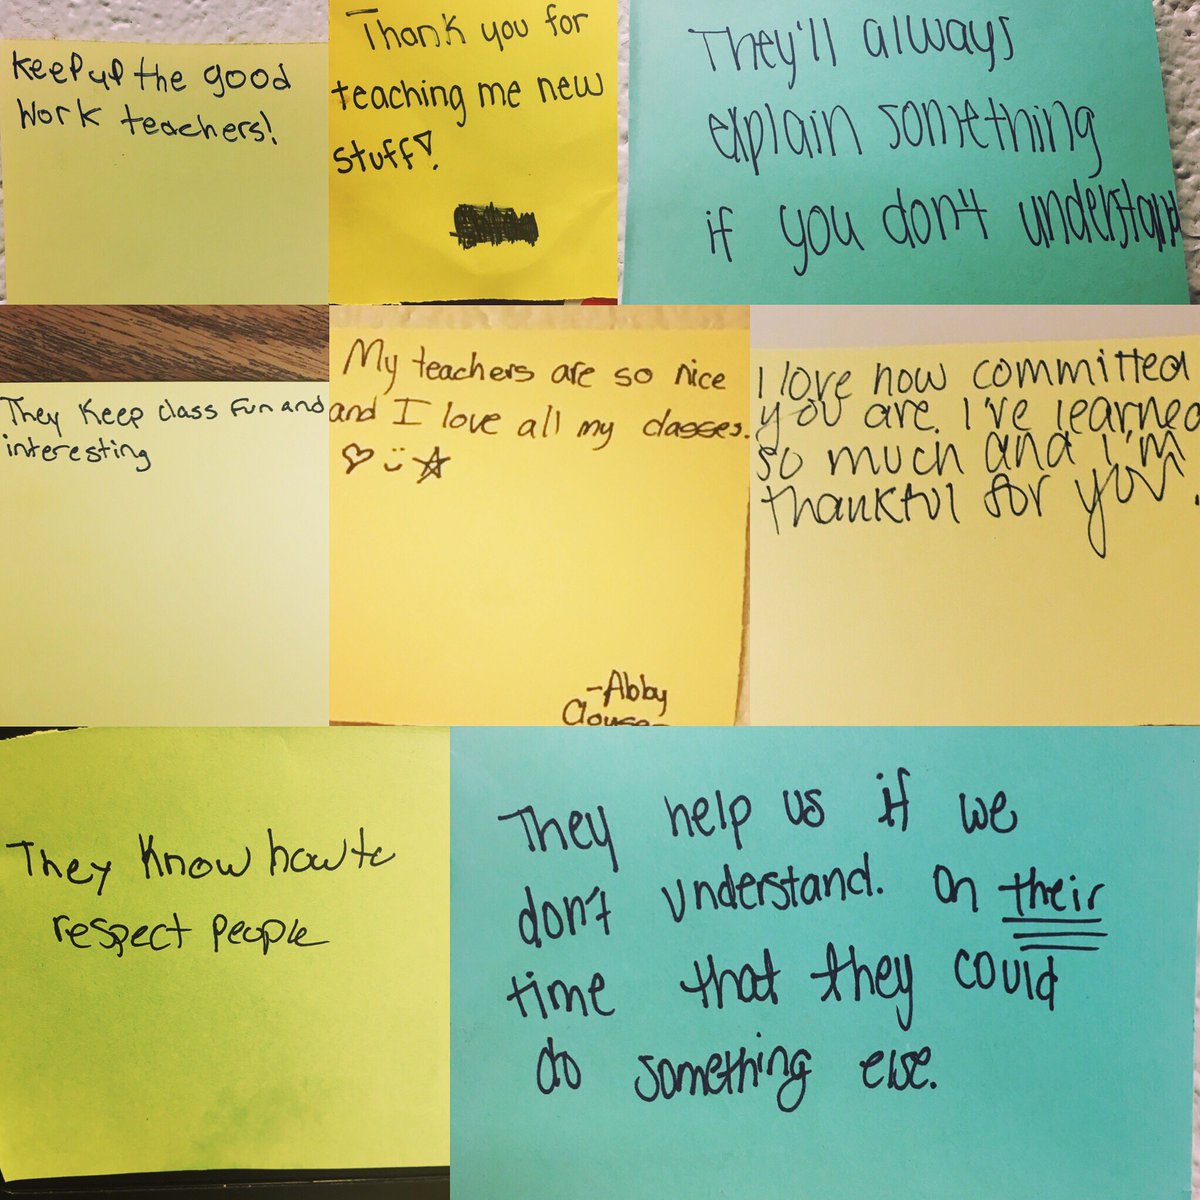 Keep up the good
work teachers!
Thank you for
teaching me new
stuff!
They'll always
explain something
if you don't understand
They keep class fun and
interesting
My teachers are so nice
and I love all my classes.
-Abby
I love how committed
you are. I've learned
so much and I'm
thankful for you.
They know how to
respect people
They help us if we
don't understand. On their
time that they could
do something else.